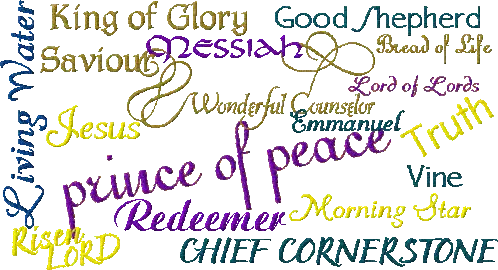 King of Glory
Good Shepherd
Living Water
Saviour
MESSIAH
Bread of Life
Lord of Lords
Wonderful Counselor
Emmanuel
Jesus
Truth
prince of peace
Vine
Redeemer
Morning Star
Risen
LORD
CHIEF CORNERSTONE